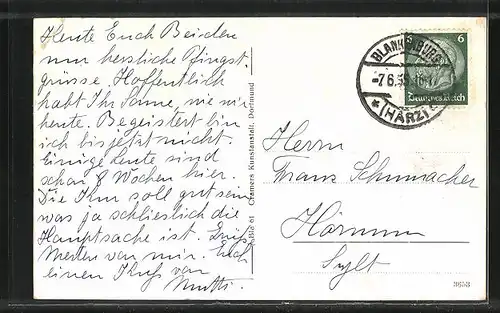 Heute Euch Beiden
nur herzliche Pfingst
grüsse. Hoffentlich
habt Ihr Sonne, wie wir
heute. Begeistert bin
ich bis jetzt nicht.
Einige Leute sind
schon 8 Wochen hier.
Die Kur soll gut sein
was ja schliesslich die
Hauptsache ist.
von mir. Euch
einen Kuß von
Mutti.
Cramers Kunstanstalt, Dortmund
BLANKENBURG
-7.6.
(HARZ)
6 6
Deutsches Reich
Herrn
Franz Schumacher
Hörnum
Sylt